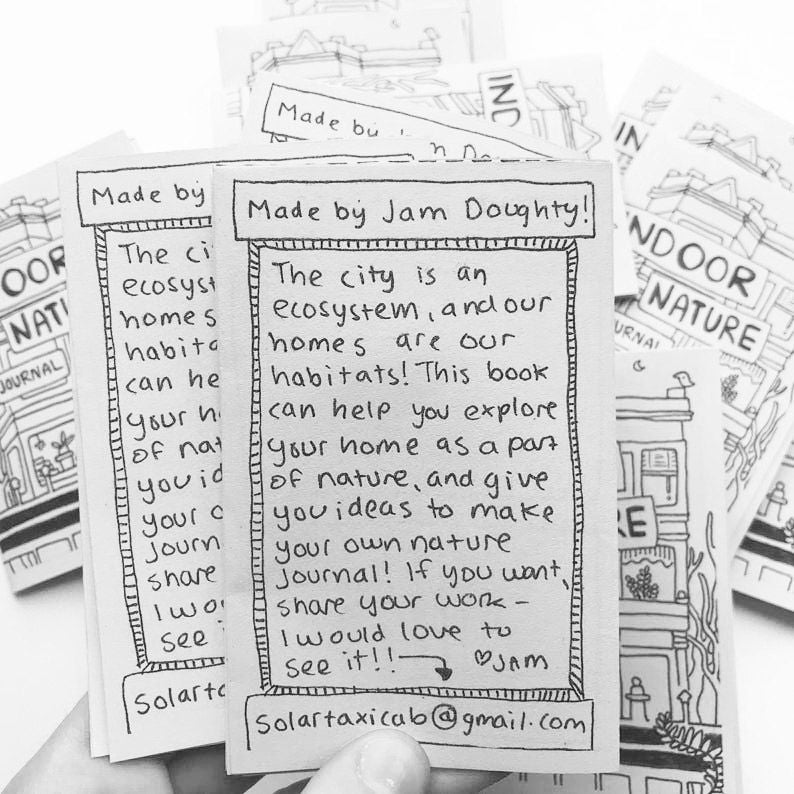 Made by Jam Doughty!
The city is an
ecosystem, and our
homes are our
habitats! This book
can help you explore
your home as a part
of nature, and give
you ideas to make
your own nature
Journal! If you want,
share your work –
I would love to
see it!! ♡JAM
solartaxicab@gmail.com
Made by
The ci
ecosyst
homes
habita
can he
your h
of nat
you id
your o
Journ
share
I wo
see i
Solarta
Made by
IND
IN
INDOOR
NATURE
URNAL
OOR
NATU
JOURNAL
RE